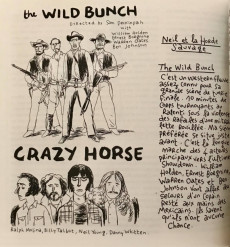 the WILD BUNCH
directed by Sam Peckinpah
with
William Holden
Ernest Borgnine
Warren Oates
Ben Johnson
CRAZY HORSE
Ralph Molina, Billy Talbot, Neil Young, Danny Whitten.
Neil et la Horde
Sauvage
The Wild Bunch
C'est un western
assez connu pour sa
grande scène de
finale. 10 minutes de
Ralents sous la
des rafales d'une
préférée se situe juste
avant. C'est la longue
marche des 4
principaux vers l'ultime
Showdown. William
Holden, Ernest Borgnine,
Warren Oates et Ben
Johnson vont
secours d'un
resté aux mains des
Mexicains. Ils savent
qu'ils n'ont aucune
Chance.